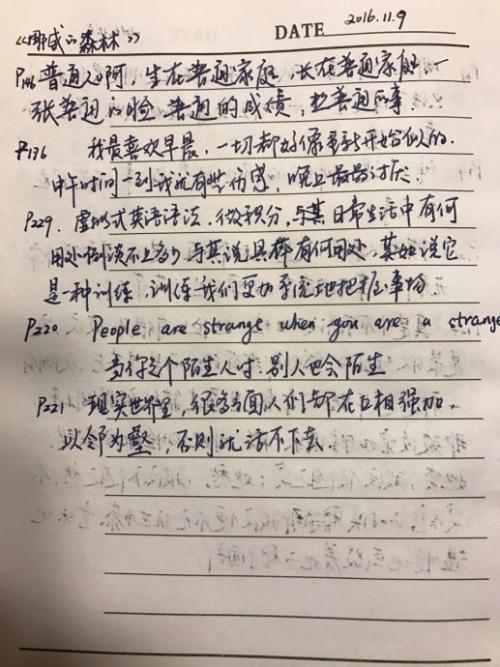 《挪威的森林》 DATE 2016.11.9
P146 普通人啊,生在普通家庭,长在普通家庭,一
张普通的脸 普通的成绩,想普通的事
P176 我最喜欢早晨,一切都好像重新开始似的.
中午时间一到我就有些伤感,晚上最最讨厌.
P229. 虚拟式英语语法,微积分,与其日常生活中有何
用处倒谈不上多少,与其说具体有何用处,莫如说它
是一种训练,训练我们更加系统地把握事物
P220 People are strange when you are a strange
当你是个陌生人时,别人也会陌生
P221 现实世界里,很多方面人们都在互相强加,
以邻为壑,否则就活不下去